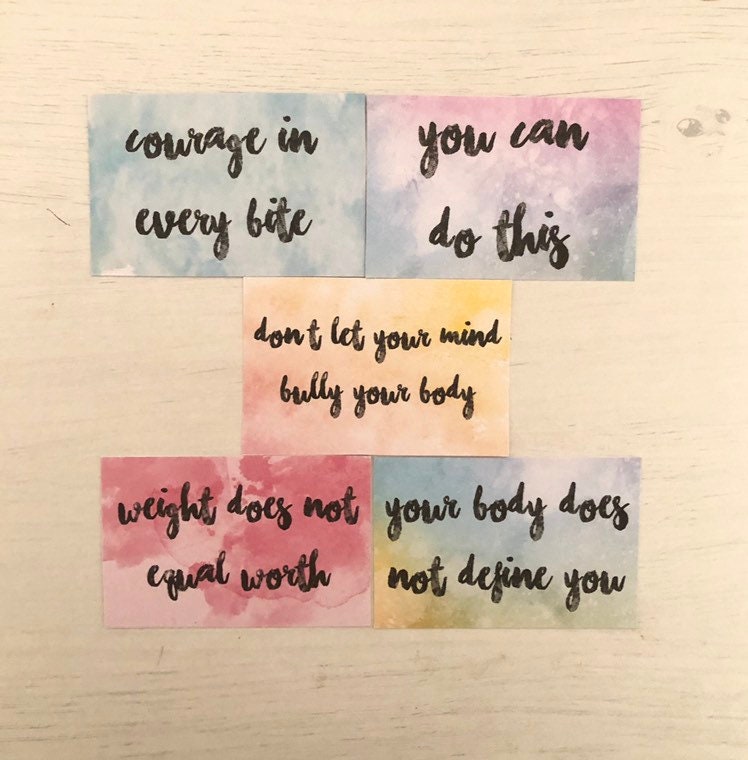 courage in
every bite
you can
do this
don't let your mind
bully your body
weight does not
equal worth
your body does
not define you